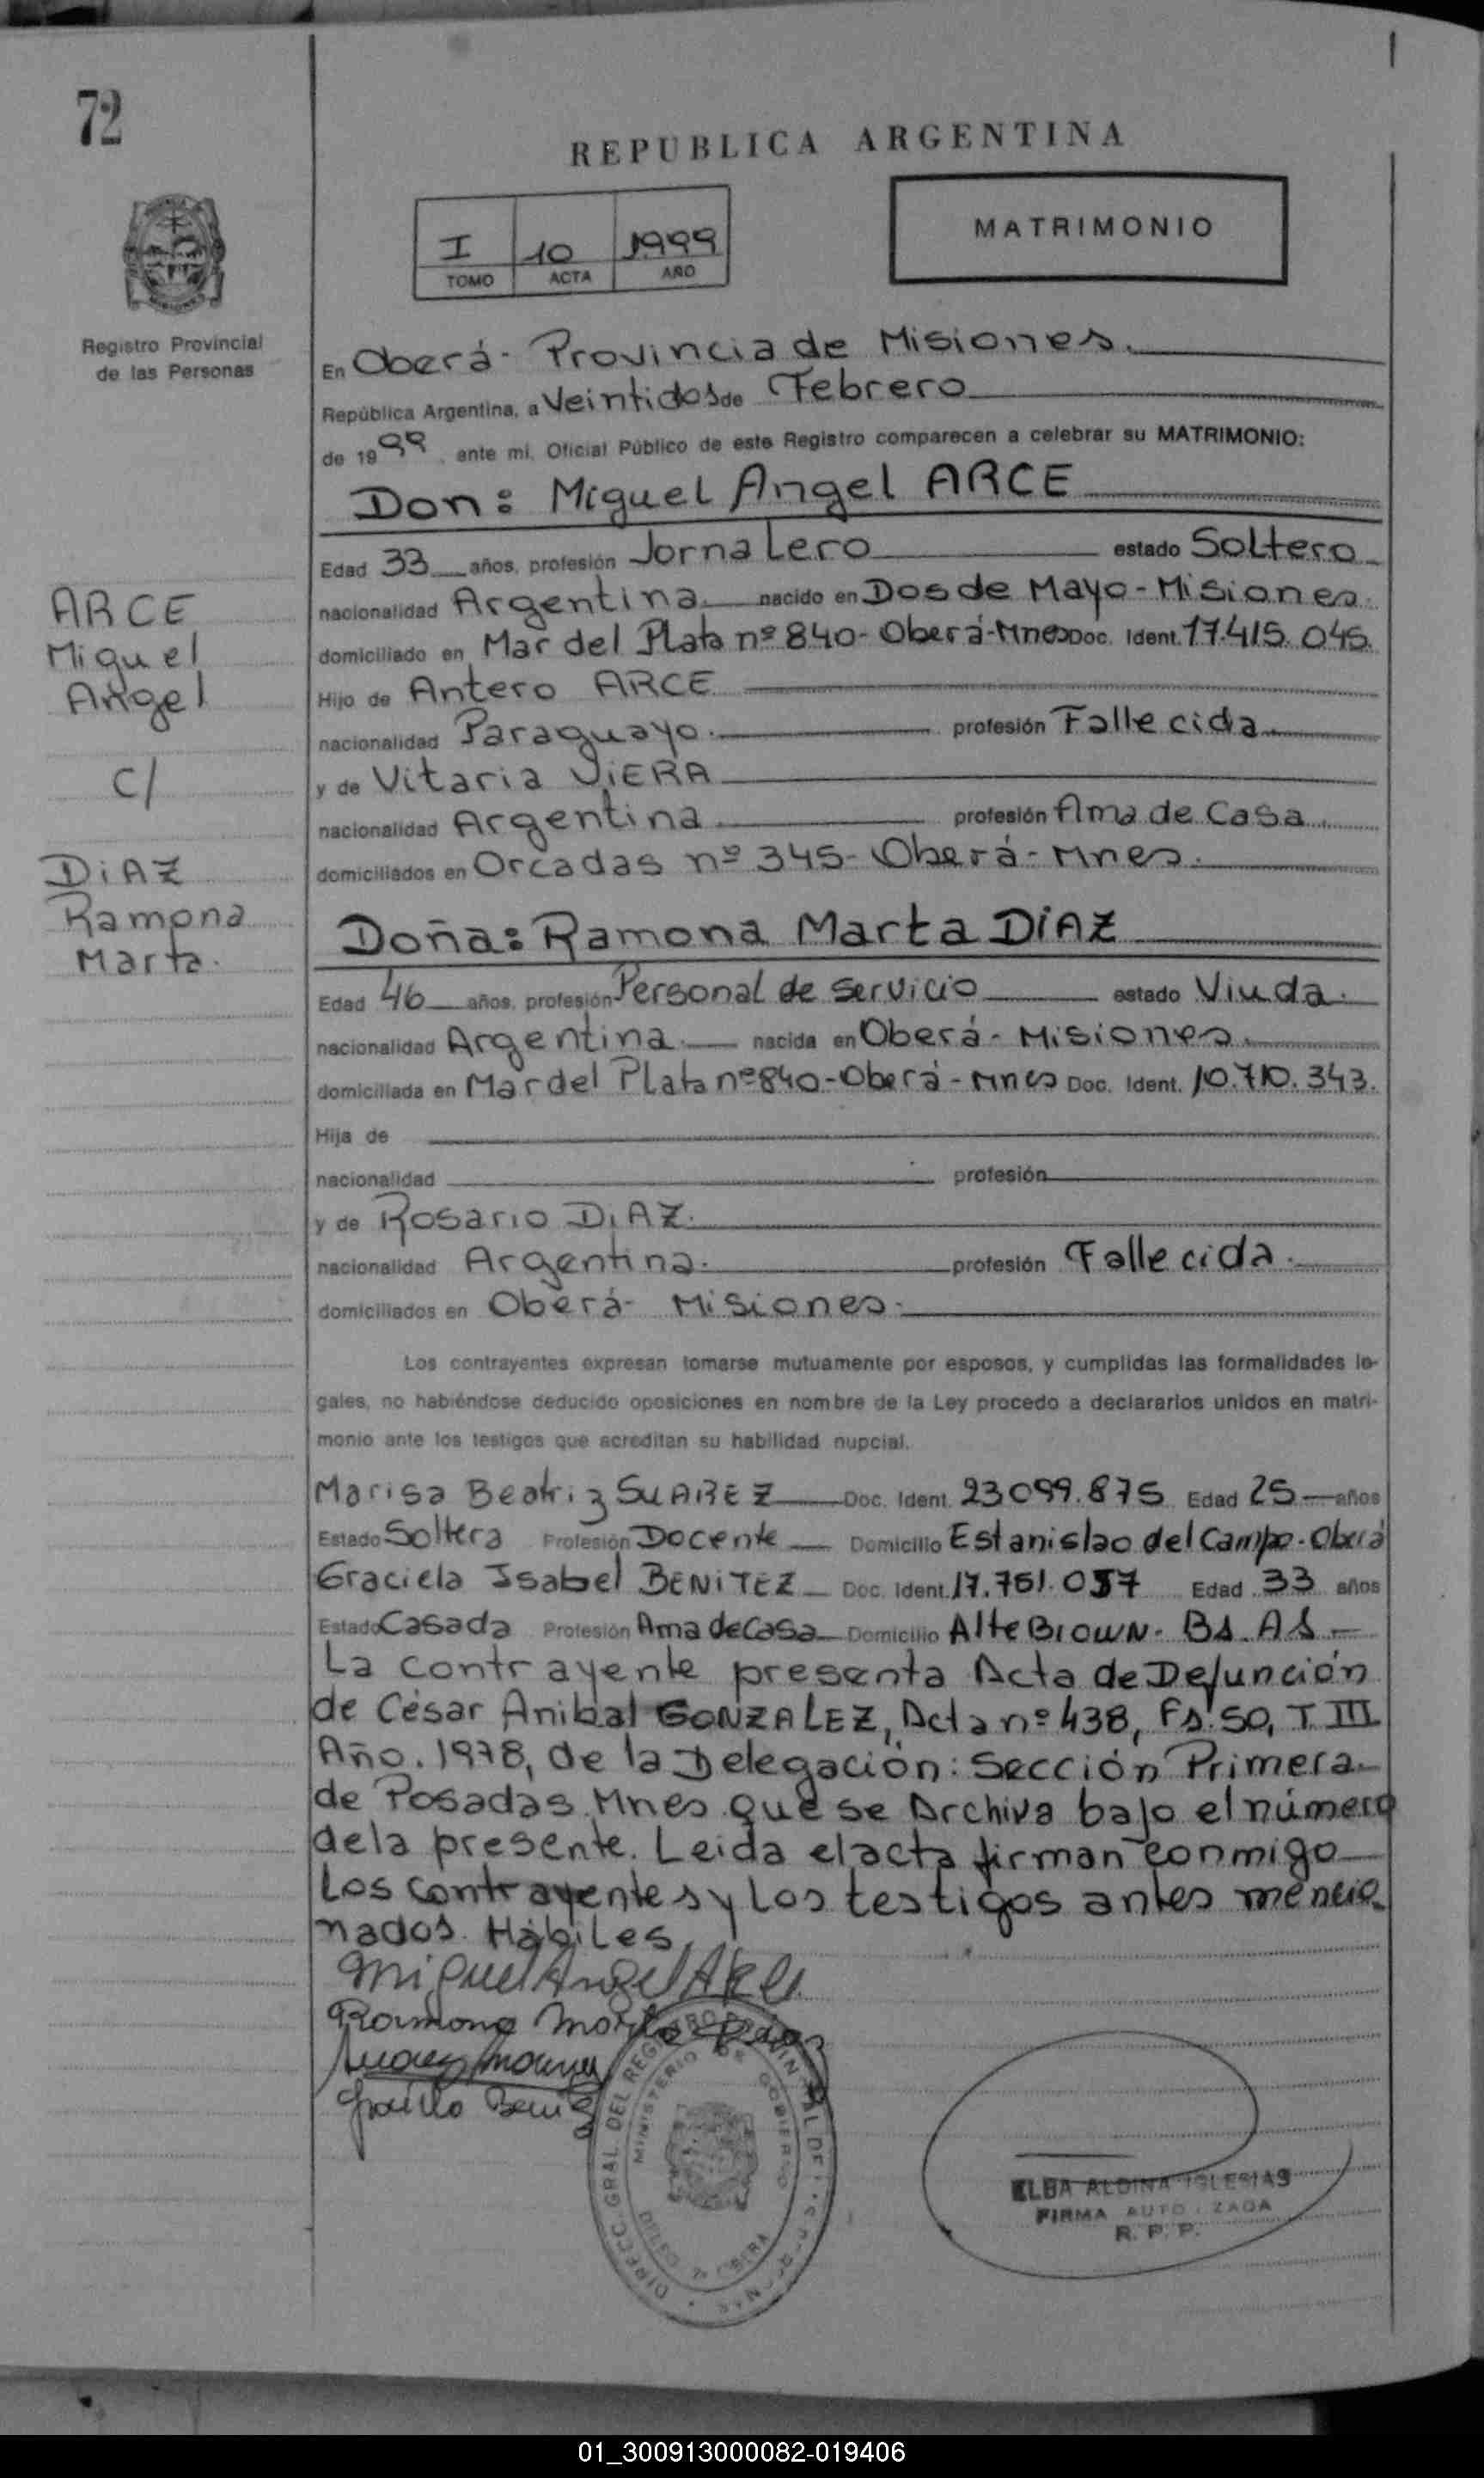 72
REPUBLICA ARGENTINA
I 10 1999
TOMO ACTA AÑO
MATRIMONIO
Registro Provincial
de las Personas
En Oberá - Provincia de Misiones.
República Argentina, a Veintidos de Febrero
de 1999, ante mi, Oficial Público de este Registro comparecen a celebrar su MATRIMONIO:
Don: Miguel Angel ARCE
Edad 33 años, profesión Jornalero estado Soltero
nacionalidad Argentina. nacido en Dos de Mayo - Misiones.
domiciliado en Mar del Plata nº 840 - Oberá - Mnes Doc. Ident. 17.415.045.
Hijo de Antero ARCE
nacionalidad Paraguayo. profesión Fallecida.
y de Vitaria ViERA
nacionalidad Argentina profesión Ama de Casa.
domiciliados en Orcadas nº 345 - Oberá - Mnes.
ARCE
Miguel
Angel
C/
DiAZ
Ramona
Marta.
Doña: Ramona Marta DiAZ
Edad 46 años, profesión Personal de servicio estado Viuda.
nacionalidad Argentina. nacida en Oberá - Misiones.
domiciliada en Mar del Plata nº 840 - Oberá - Mnes Doc. Ident. 10.710.343.
Hija de
nacionalidad profesión
y de Rosario DiAZ.
nacionalidad Argentina. profesión Fallecida.
domiciliados en Oberá - Misiones.
Los contrayentes expresan tomarse mutuamente por esposos, y cumplidas las formalidades le-
gales, no habiéndose deducido oposiciones en nombre de la Ley procedo a declararlos unidos en matri-
monio ante los testigos que acreditan su habilidad nupcial.
Marisa Beatriz SUAREZ Doc. Ident. 23099.875 Edad 25 años
Estado Soltera Profesión Docente Domicilio Estanislao del Campo - Oberá
Graciela Isabel BENiTEZ Doc. Ident. 17.751.037 Edad 33 años
Estado Casada Profesión Ama de Casa Domicilio Alte Brown - Bs. As
La contrayente presenta Acta de Defunción
de César Anibal GONZALEZ, Acta nº 438, Fs. 50, T III
Año. 1978, de la Delegación: Sección Primera
de Posadas Mnes que se Archiva bajo el número
de la presente. Leida el acta firman conmigo
Los contrayentes y Los testigos antes mencio
nados. HábiLes
Miguel Angel Arce
Ramona Marta Diaz
Suarez Marisa
Graciela Benitez
DIRECC. GRAL. DEL REGISTRO PROVINCIAL DE LAS PERSONAS
MINISTERIO DE GOBIERNO
ELBA ALDINA IGLESIAS
FIRMA AUTORIZADA
R. P. P.
01_300913000082-019406